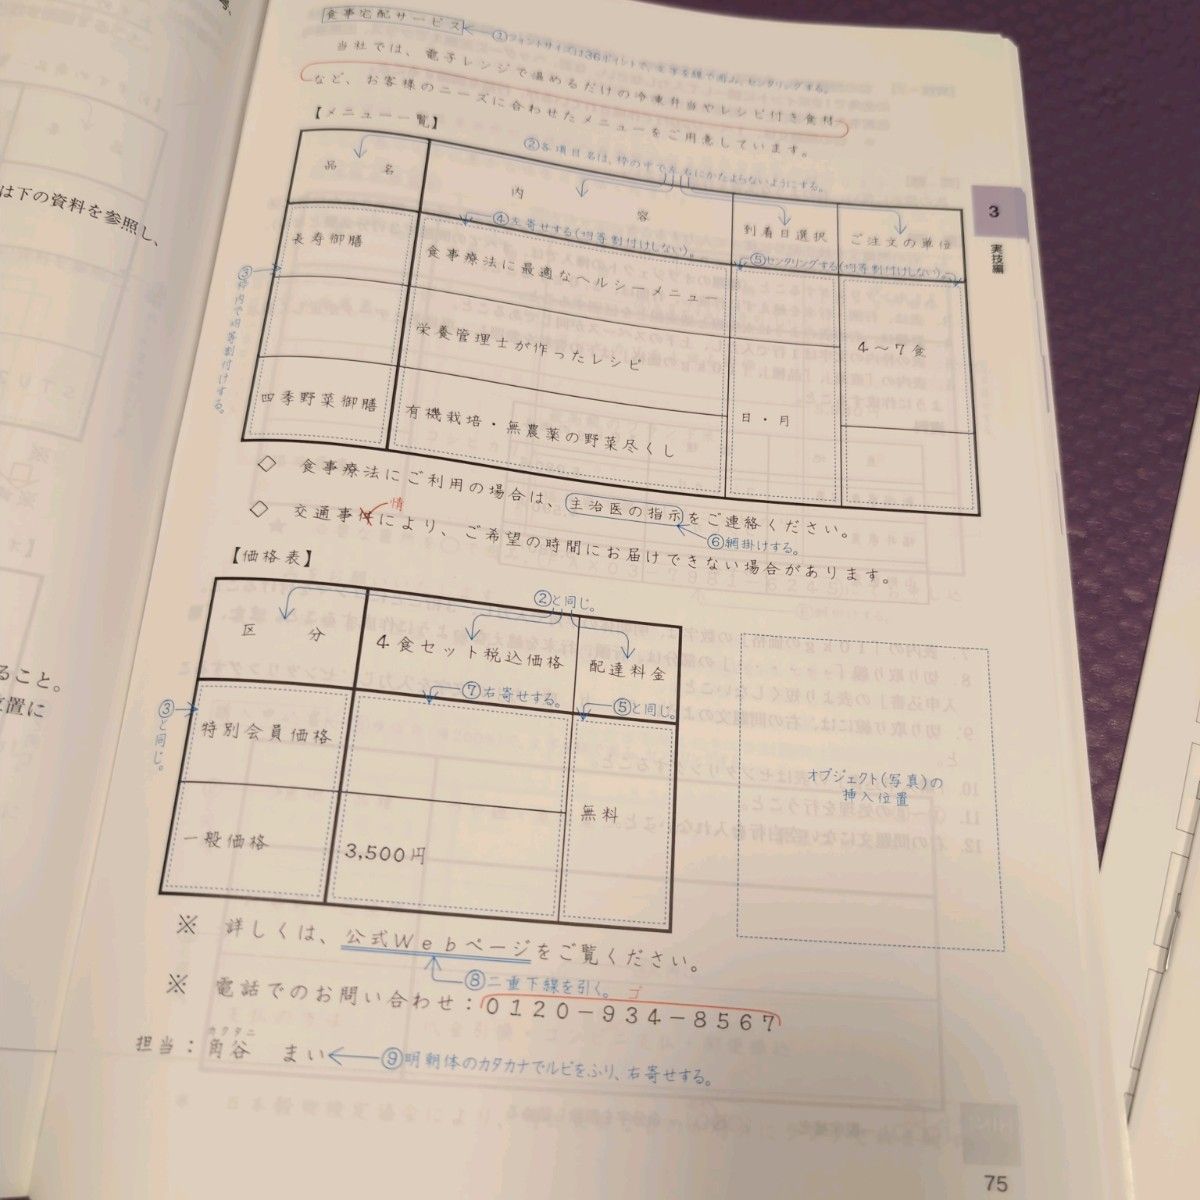 は下の資料を参照し、
ること。
置に
食事宅配サービス
①フォントサイズは36ポイントで、文字を線で囲み、センタリングする。
当社では、電子レンジで温めるだけの冷凍弁当やレシピ付き食材
など、お客様のニーズに合わせたメニューをご用意しています。
【メニュー一覧】
②各項目名は、枠の中で左右にかたよらないようにする。
品 名
内 容
到着日選択
ご注文の単位
④左寄せする(均等割付けしない)。
⑤センタリングする(均等割付けしない)。
③枠内で均等割付けする。
長寿御膳
食事療法に最適なヘルシーメニュー
栄養管理士が作ったレシピ
4～7食
四季野菜御膳
有機栽培・無農薬の野菜尽くし
日・月
◇ 食事療法にご利用の場合は、主治医の指示をご連絡ください。
⑥網掛けする。
情
◇ 交通事件により、ご希望の時間にお届けできない場合があります。
【価格表】
②と同じ。
区 分
4食セット税込価格
配達料金
⑦右寄せする。
⑤と同じ。
③と同じ。
特別会員価格
一般価格
3,500円
無料
オブジェクト(写真)の
挿入位置
※ 詳しくは、公式Ｗｅｂページをご覧ください。
⑧二重下線を引く。
ゴ
※ 電話でのお問い合わせ：０１２０－９３４－８５６７
カクタニ
担当：角谷 まい
⑨明朝体のカタカナでルビをふり、右寄せする。
3
実技編
75